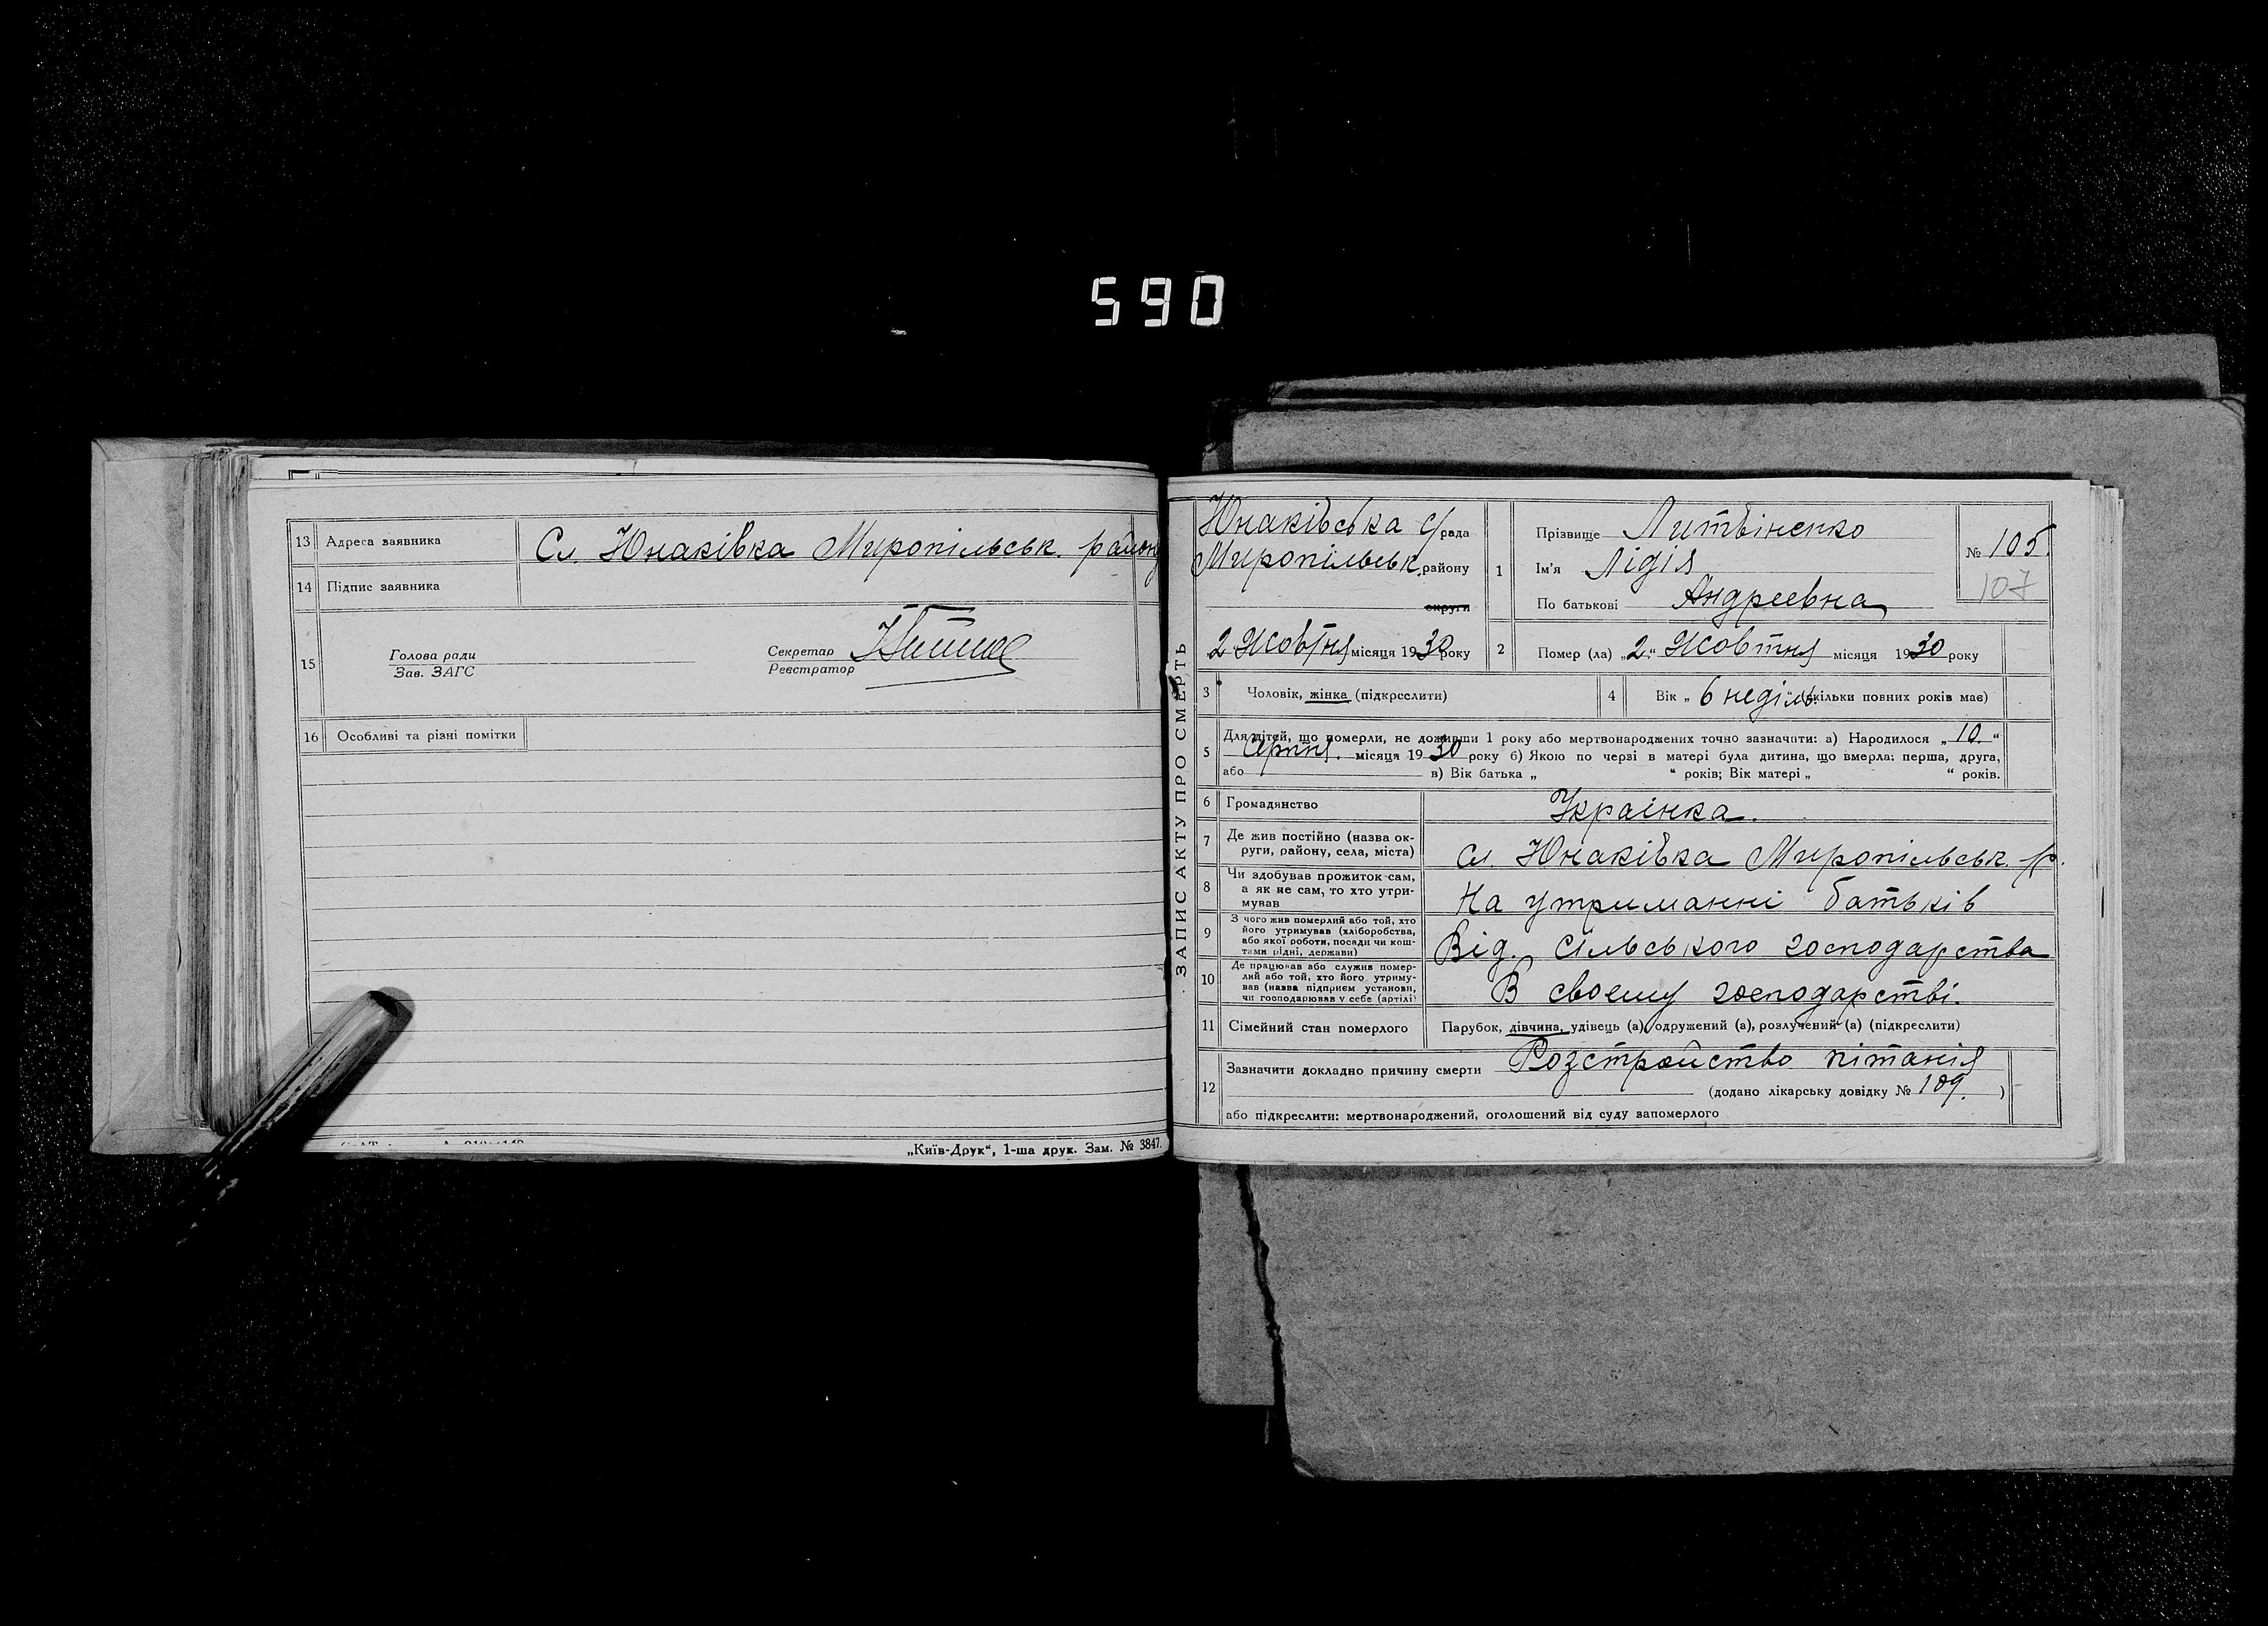 590
13 Адреса заявника Сл. Юнаківка Миропільськ. району
14 Підпис заявника
15 Голова ради
Зав. ЗАГС
Секретар
Реєстратор
16 Особливі та різні помітки
„Київ-Друк“, 1-ша друк. Зам. № 3847.
ЗАПИС АКТУ ПРО СМЕРТЬ
Юнаківська с/рада
Миропільськ. району
округи
2 Жовтня місяця 1930 року
1 Прізвище Литвіненко
Ім'я Лідія
По батькові Андреевна
№ 105.
107
2 Помер (ла) „2“ Жовтня місяця 1930 року
3 Чоловік, жінка (підкреслити)
4 Вік „ 6 неділь “ скільки повних років має)
5 Для дітей, що померли, не доживши 1 року або мертвонароджених точно зазначити: а) Народилося „10.“
місяця 1930 року б) Якою по черзі в матері була дитина, що вмерла: перша, друга,
або в) Вік батька „ “ років; Вік матері „ “ років.
6 Громадянство Украінка.
7 Де жив постійно (назва ок-
руги, району, села, міста) сл. Юнаківка Миропільськ. р.
8 Чи здобував прожиток сам,
а як не сам, то хто утри-
мував На утриманні батьків
9 З чого жив померлий або той, хто
його утримував (хліборобства,
або якої роботи, посади чи кош-
тами рідні, держави) Від. сільського господарства
10 Де працював або служив помер-
лий або той, хто його утриму-
вав (назва підприєм установи,
чи господарював у себе (артілі) В своему господарстві.
11 Сімейний стан померлого Парубок, дівчина, удівець (а), одружений (а), розлучений (а) (підкреслити)
12 Зазначити докладно причину смерти Розстройство пітанія
(додано лікарську довідку № 109. )
або підкреслити: мертвонароджений, оголошений від суду запомерлого